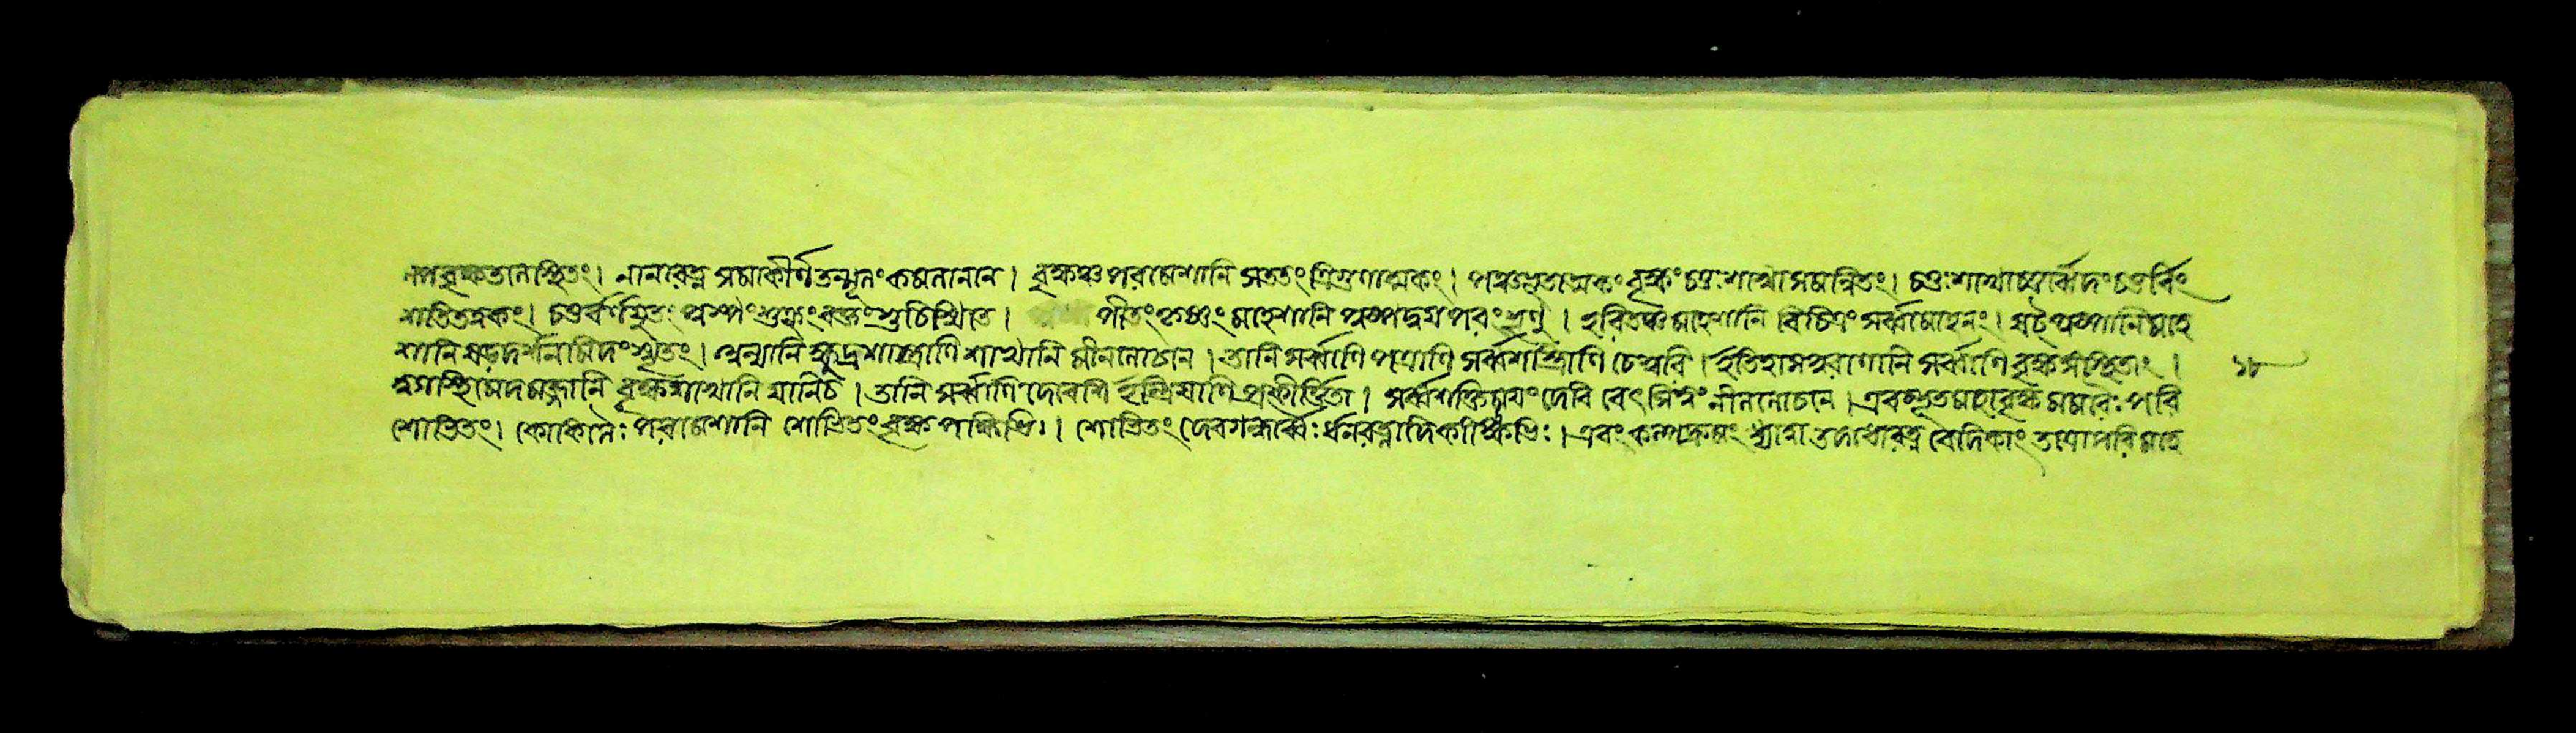 ল্পবৃক্ষতানস্থিতং। নানারত্ন সমাকীর্ণ তন্মূলং কমলাননে। বৃক্ষঞ্চ পরমেশানি সততং ত্রিগুণাত্মকং। পঞ্চভূতাত্মকং বৃক্ষং চতুঃশাখা সমন্বিতং। চতুঃশাখাচতুর্ব্বেদং চতুর্বিং
শতিতত্ত্বকং। চতুর্বর্ণযুতং পুষ্পং শুক্লং রক্তং শুচিস্মিতে। পীতং কৃষ্ণং মহেশানি পুষ্পদ্বয়পরং শৃণু। হরিতঞ্চ মহেশানি বিচিত্রং সর্ব্বমোহনং। ষট্পুষ্পানি মহে
শানি ষড়দর্শনমিদং স্মৃতং। অন্যানি ক্ষুদ্রশাস্ত্রাণি শাখানি মীনলোচনে। তানি সর্ব্বাণি পত্রাণি সর্ব্বশাস্ত্রাণি চেশ্বরি। ইতিহাসপুরাণানি সর্ব্বাণি বৃক্ষসংস্থিতং। ১৮
ত্বগস্থিমেদমজ্জানি বৃক্ষশাখানি যানিচ। তানি সর্ব্বাণি দেবেশি ইন্দ্রিয়াণি প্রকীর্ত্তিতা। সর্ব্বশক্তিময়ং দেবি মীনলোচনে। এবম্ভূতমহাবৃক্ষং ভ্রমরৈঃ পরি
শোভিতং। কোকিলৈঃ পরমেশানি শোভিতং বৃক্ষ পক্ষিভিঃ। শোভিতং দেবগন্ধর্ব্বৈঃ ধনরত্নাদিকাঙ্ক্ষিভিঃ। এবং কল্পদ্রুমং ধ্যাত্বা তদধোরত্ন বেদিকাং তত্রোপরি মহে